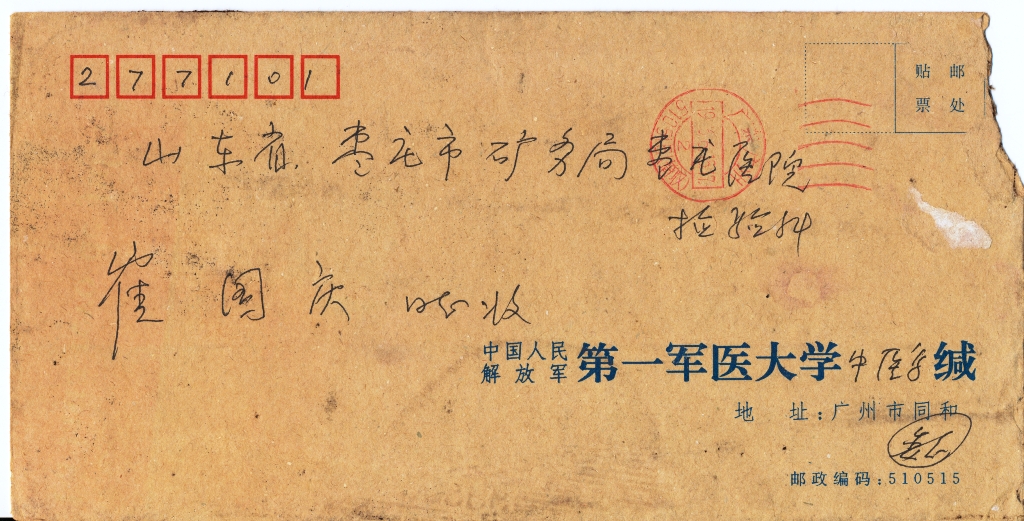 277101
贴 邮
票 处
山东省枣庄市矿务局枣庄医院
检验科
崔国庆 收
中国人民
解放军
第一军医大学中医系缄
地 址:广州市同和
邮政编码:510515